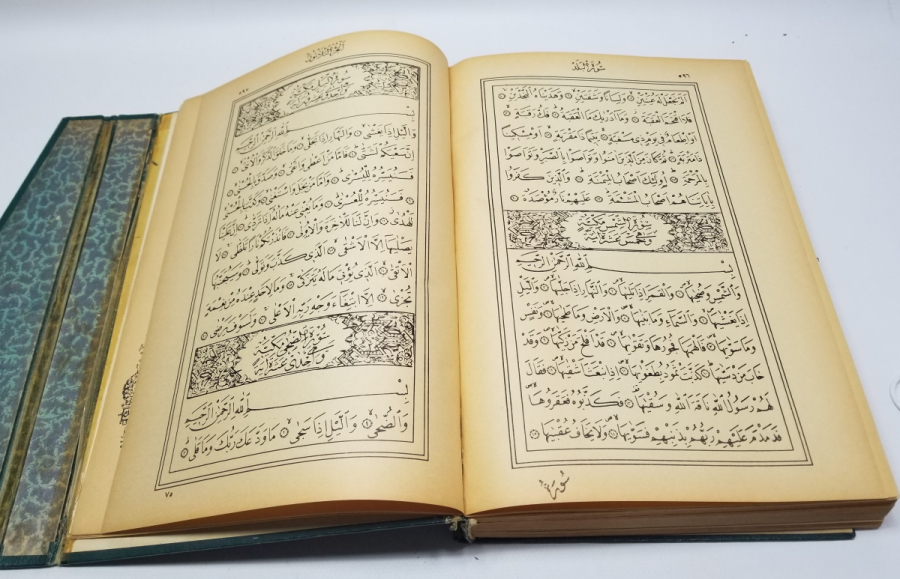 سُورَةُ الْبَلَدِ ٥٩٦
اَلَمْ نَجْعَلْ لَهُ عَيْنَيْنِ ۞ وَلِسَانًا وَشَفَتَيْنِ ۞ وَهَدَيْنَاهُ النَّجْدَيْنِ ۞
فَلَا اقْتَحَمَ الْعَقَبَةَ ۞ وَمَا اَدْرٰيكَ مَا الْعَقَبَةُ ۞ فَكُّ رَقَبَةٍ ۞
اَوْ اِطْعَامٌ فِي يَوْمٍ ذِي مَسْغَبَةٍ ۞ يَتِيمًا ذَا مَقْرَبَةٍ ۞ اَوْ مِسْكِينًا
ذَا مَتْرَبَةٍ ۞ ثُمَّ كَانَ مِنَ الَّذِينَ اٰمَنُوا وَتَوَاصَوْا بِالصَّبْرِ وَتَوَاصَوْا
بِالْمَرْحَمَةِ ۞ اُولٰئِكَ اَصْحَابُ الْمَيْمَنَةِ ۞ وَالَّذِينَ كَفَرُوا
بِاٰيَاتِنَا هُمْ اَصْحَابُ الْمَشْئَمَةِ ۞ عَلَيْهِمْ نَارٌ مُؤْصَدَةٌ ۞
سُورَةُ الشَّمْسِ مَكِّيَّةٌ
بِسْمِ اللّٰهِ الرَّحْمٰنِ الرَّحِيمِ
وَالشَّمْسِ وَضُحٰيهَا ۞ وَالْقَمَرِ اِذَا تَلٰيهَا ۞ وَالنَّهَارِ اِذَا جَلّٰيهَا ۞ وَالَّيْلِ
اِذَا يَغْشٰيهَا ۞ وَالسَّمَاءِ وَمَا بَنٰيهَا ۞ وَالْاَرْضِ وَمَا طَحٰيهَا ۞ وَنَفْسٍ
وَمَا سَوّٰيهَا ۞ فَاَلْهَمَهَا فُجُورَهَا وَتَقْوٰيهَا ۞ قَدْ اَفْلَحَ مَنْ زَكّٰيهَا ۞ وَقَدْ
خَابَ مَنْ دَسّٰيهَا ۞ كَذَّبَتْ ثَمُودُ بِطَغْوٰيهَا ۞ اِذِ انْبَعَثَ اَشْقٰيهَا ۞ فَقَالَ
لَهُمْ رَسُولُ اللّٰهِ نَاقَةَ اللّٰهِ وَسُقْيٰيهَا ۞ فَكَذَّبُوهُ فَعَقَرُوهَا
فَدَمْدَمَ عَلَيْهِمْ رَبُّهُمْ بِذَنْبِهِمْ فَسَوّٰيهَا ۞ وَلَا يَخَافُ عُقْبٰيهَا ۞
سُورَةُ
٥٩٧
سُورَةُ الَّيْلِ مَكِّيَّةٌ
بِسْمِ اللّٰهِ الرَّحْمٰنِ الرَّحِيمِ
وَالَّيْلِ اِذَا يَغْشٰى ۞ وَالنَّهَارِ اِذَا تَجَلّٰى ۞ وَمَا خَلَقَ الذَّكَرَ وَالْاُنْثٰى ۞
اِنَّ سَعْيَكُمْ لَشَتّٰى ۞ فَاَمَّا مَنْ اَعْطٰى وَاتَّقٰى ۞ وَصَدَّقَ بِالْحُسْنٰى ۞
فَسَنُيَسِّرُهُ لِلْيُسْرٰى ۞ وَاَمَّا مَنْ بَخِلَ وَاسْتَغْنٰى ۞ وَكَذَّبَ بِالْحُسْنٰى ۞
فَسَنُيَسِّرُهُ لِلْعُسْرٰى ۞ وَمَا يُغْنِي عَنْهُ مَالُهُ اِذَا تَرَدّٰى ۞ اِنَّ عَلَيْنَا
لَلْهُدٰى ۞ وَاِنَّ لَنَا لَلْاٰخِرَةَ وَالْاُولٰى ۞ فَاَنْذَرْتُكُمْ نَارًا تَلَظّٰى ۞ لَا
يَصْلٰيهَا اِلَّا الْاَشْقٰى ۞ اَلَّذِي كَذَّبَ وَتَوَلّٰى ۞ وَسَيُجَنَّبُهَا
الْاَتْقٰى ۞ اَلَّذِي يُؤْتِي مَالَهُ يَتَزَكّٰى ۞ وَمَا لِاَحَدٍ عِنْدَهُ مِنْ نِعْمَةٍ
تُجْزٰى ۞ اِلَّا ابْتِغَاءَ وَجْهِ رَبِّهِ الْاَعْلٰى ۞ وَلَسَوْفَ يَرْضٰى ۞
سُورَةُ الضُّحٰى مَكِّيَّةٌ
بِسْمِ اللّٰهِ الرَّحْمٰنِ الرَّحِيمِ
وَالضُّحٰى ۞ وَالَّيْلِ اِذَا سَجٰى ۞ مَا وَدَّعَكَ رَبُّكَ وَمَا قَلٰى ۞
٧٥